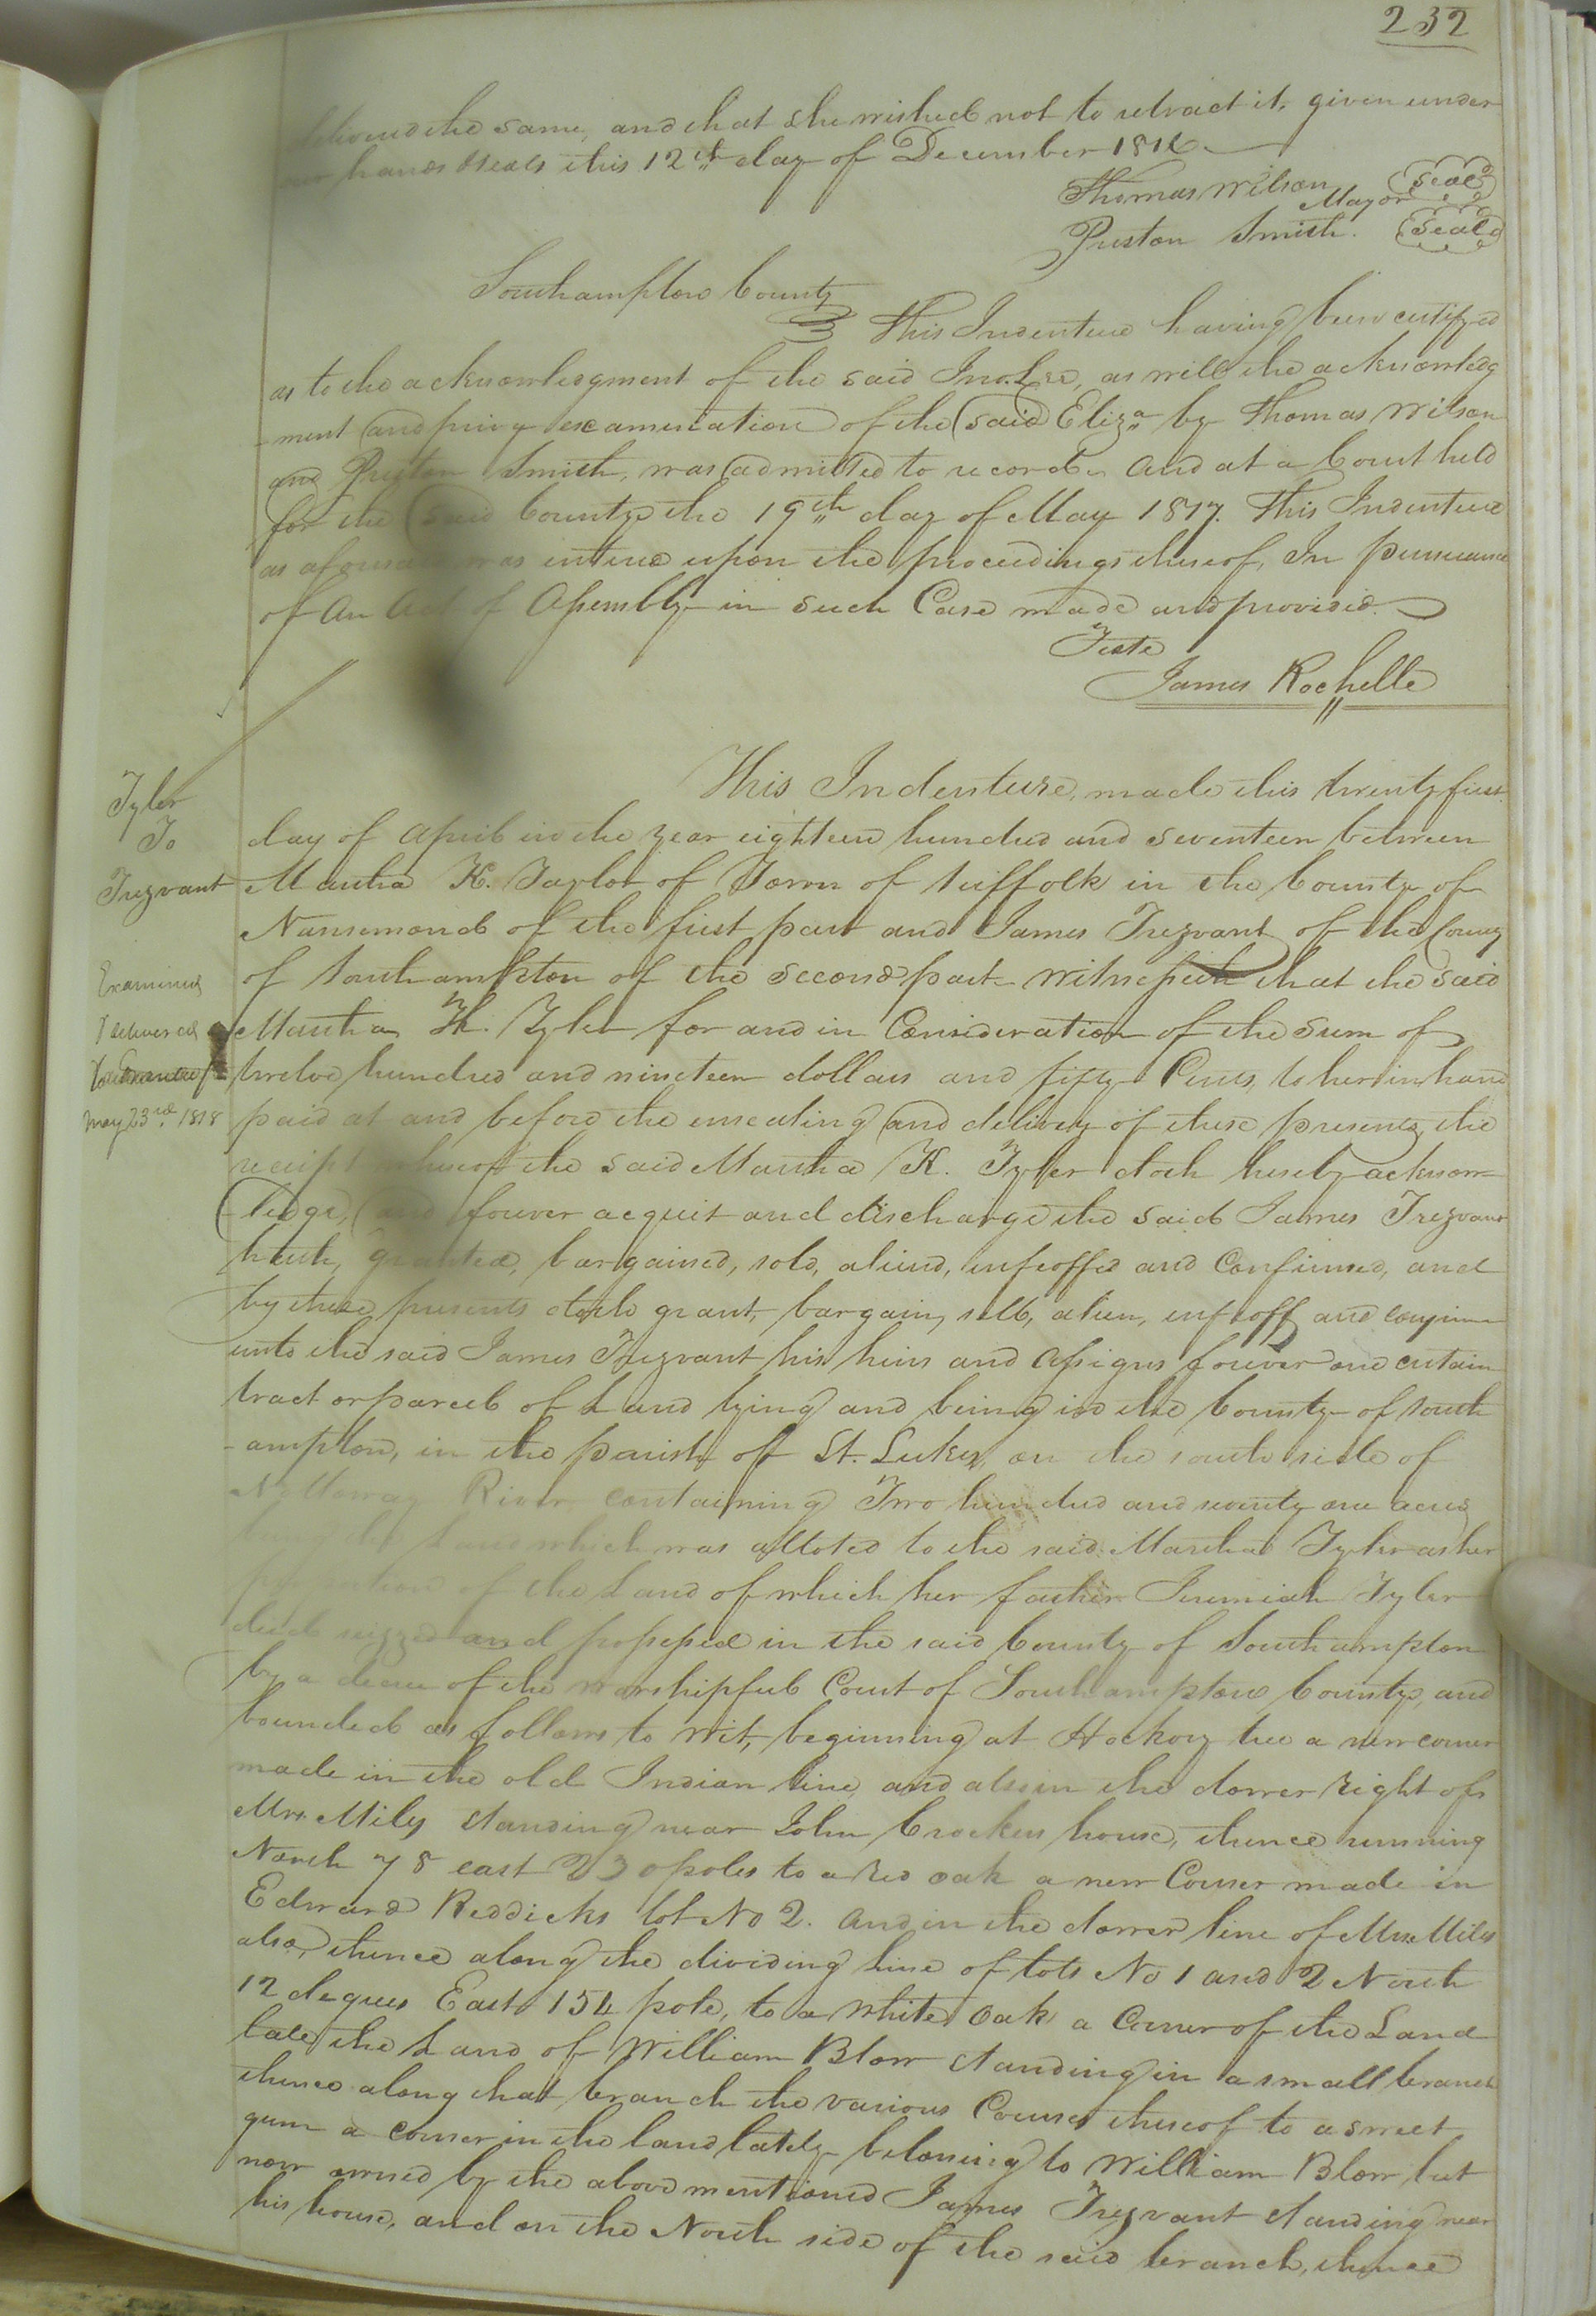 232
delivered the same, and that she wished not to retract it, given under
our hands & seals this 12th day of December 1816.
Thomas Wilson Mayor Seal
Preston Smith. Seal
Southampton County
This Indenture having been certifyed
as to the acknowledgment of the said Jno. Lee, as will the acknowledg
-ment and privy examination of the said Eliza by Thomas Wilson
and Preston Smith, was admitted to record. And at a Court held
for the said County the 19th day of May 1817. This Indenture
as aforesaid was entered upon the proceedings thereof, In pursuance
of An Act of Assembly in such Case made and provided.
Teste
James Rochelle
This Indenture, made this twenty first
Tyler
To
Trezvant
day of April in the year eighteen hundred and seventeen between
Martha K. Taylor of Town of Suffolk in the County of
Nansemond of the first part and James Trezvant of the County
of Southampton of the second part Witnesseth that the said
Examined
Delivered
May 23rd 1818
Martha K. Tyler for and in Consideration of the Sum of
twelve hundred and nineteen dollars and fifty Cents, to her in hand
paid at and before the ensealing and delivery of these presents, the
receipt whereof the said Martha K. Tyler doth hereby acknow-
-ledge, and forever acquit and discharge the said James Trezvant
hath, granted, bargained, sold, aliend, enfeoffed and Confirmed, and
by these presents doth grant, bargain, sell, alien, enfeoff and confirm
unto the said James Trezvant his heirs and Assigns forever one certain
tract or parcel of Land lying and being in the County of South
-ampton, in the parish of St. Lukes, on the south side of
Nottoway River containing Two hundred and seventy one acres
being the Land which was alloted to the said Martha Tyler as her
proportion of the Land of which her father Jeremiah Tyler
died seized and possessed in the said County of Southampton
by a decree of the worshipful Court of Southampton County, and
bounded as follows to wit, beginning at Hockory tree a new corner
made in the old Indian line, and also in the dower right of
Mrs. Miles standing near John Crockers house, thence running
North 78 east 230 poles to a Red oak a new Corner made in
Edward Reddicks lot No 2. and in the dower line of Mrs. Miles
also, thence along the dividing line of lots No 1 and 2 North
12 degrees East 154 pole, to a White Oak a Corner of the Land
late the Land of William Blow standing in a small branch
thence along that branch the various Courses thereof to a sweet
gum a corner in the land lately belonging to William Blow but
now owned by the above mentioned James Trezvant standing near
his house, and on the North side of the said branch, thence